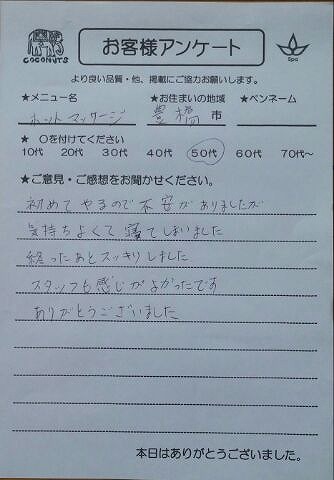 COCONUTS
お客様アンケート
Spa
より良い品質・他、掲載にご協力お願いします。
★メニュー名 ★お住まいの地域 ★ペンネーム
ホットマッサージ 豊橋 市
★ ○を付けてください
10代 20代 30代 40代 50代 60代 70代~
★ご意見・ご感想をお聞かせください。
初めてやるので不安がありましたが
気持ちよくて寝てしまいました
終ったあとスッキリしました
スタッフも感じがよかったです
ありがとうございました
本日はありがとうございました。